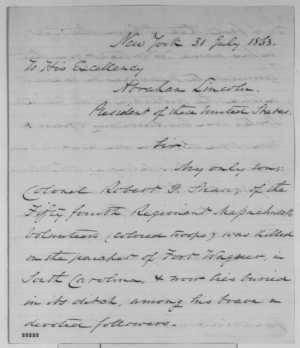 New York 31 July 1863.
To His Excellency
Abraham Lincoln.
President of these United States.
Sir:
My only son,
Colonel Robert G. Shaw, of the
Fifty fourth Regiment Massachusetts
Volunteers (colored troops) was killed
on the parapet of Fort Wagner, in
South Carolina, & now lies buried
in its ditch, among his brave &
devoted followers.